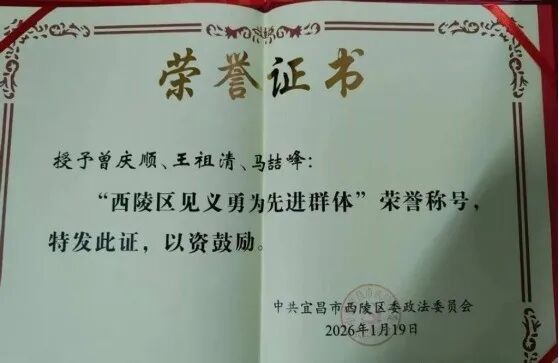 荣誉证书
授予曾庆顺、王祖清、马喆峰：
“西陵区见义勇为先进群体”荣誉称号，
特发此证，以资鼓励。
中共宜昌市西陵区委政法委员会
2026年1月19日